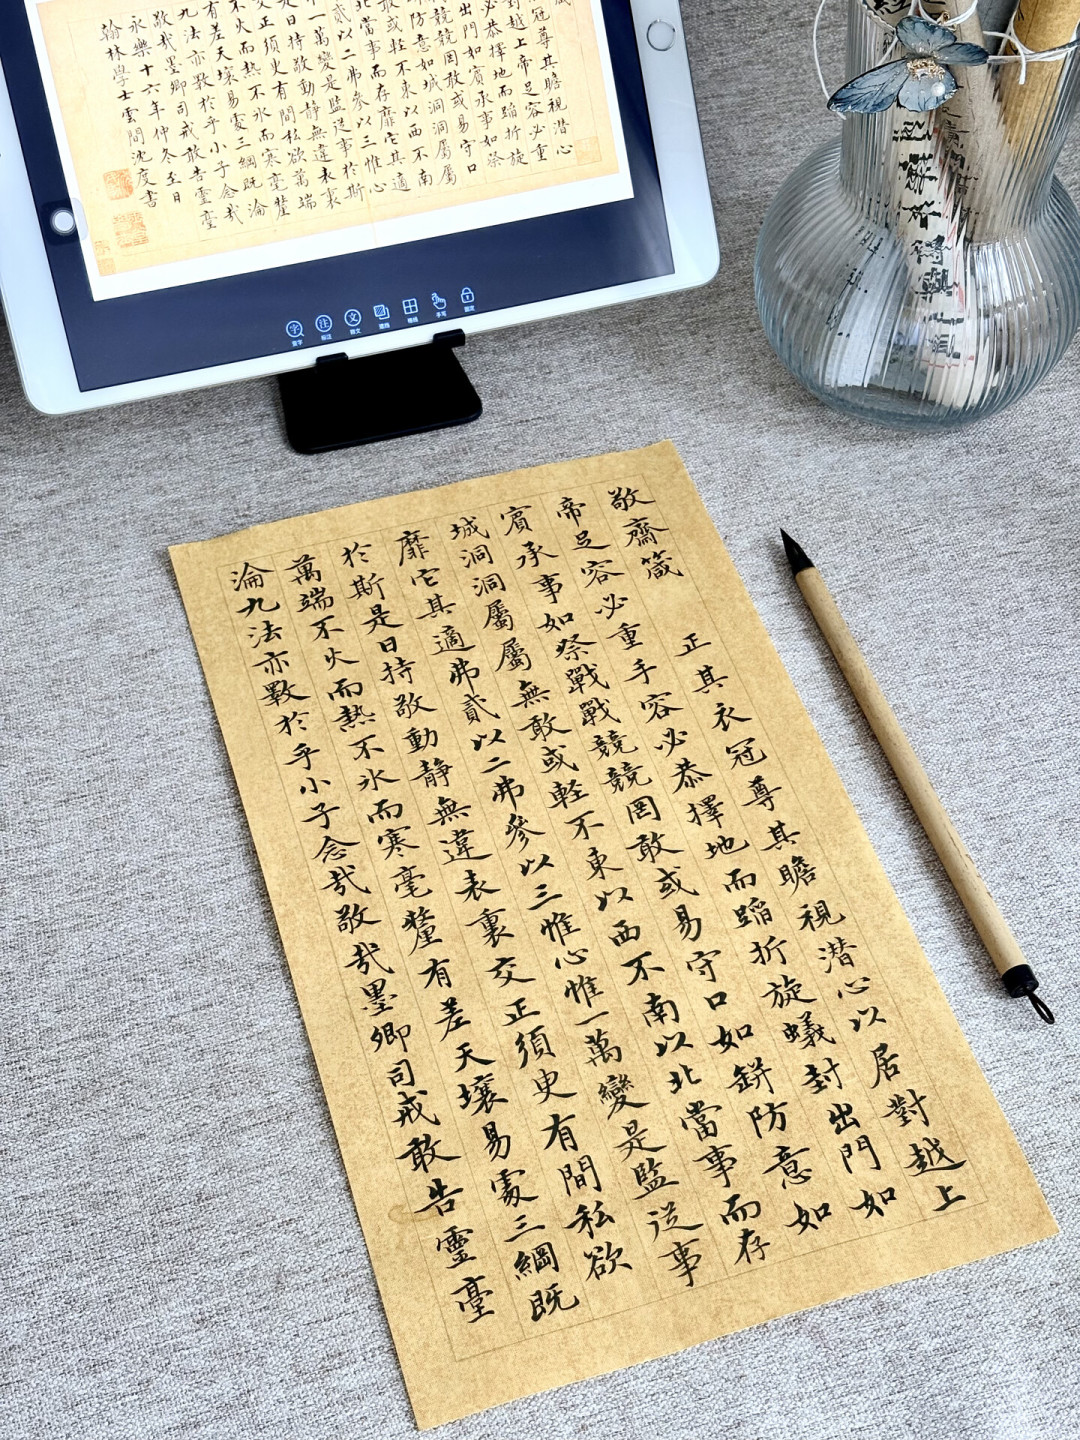 箴
冠尊其瞻視潛心
對越上帝足容必重
必恭擇地而蹈折旋
出門如賓承事如祭
競競罔敢或易守口
防意如城洞洞屬屬
敢或輕不東以西不南
北當事而存靡它其適
貳以二弗參以三惟心
一萬變是監從事於斯
是日持敬動靜無違表裏
交正須臾有間私欲萬端
不火而熱不氷而寒毫釐
有差天壤易處三綱既淪
九法亦斁於乎小子念哉
敬哉墨卿司戒敢告靈臺
永樂十六年仲冬至日
翰林學士雲間沈度書
字 注 文
查字 标注 释文 格线 手写 固定
敬齋箴 正其衣冠尊其瞻視潜心以居對越上
帝足容必重手容必恭擇地而蹈折旋蟻封出門如
賓承事如祭戰戰競競罔敢或易守口如缾防意如
城洞洞屬屬無敢或輕不東以西不南以北當事而存
靡它其適弗貳以二弗參以三惟心惟一萬變是監從事
於斯是日持敬動靜無違表裏交正須臾有間私欲
萬端不火而熱不氷而寒毫釐有差天壤易處三綱既
淪九法亦斁於乎小子念哉敬哉墨卿司戒敢告靈臺